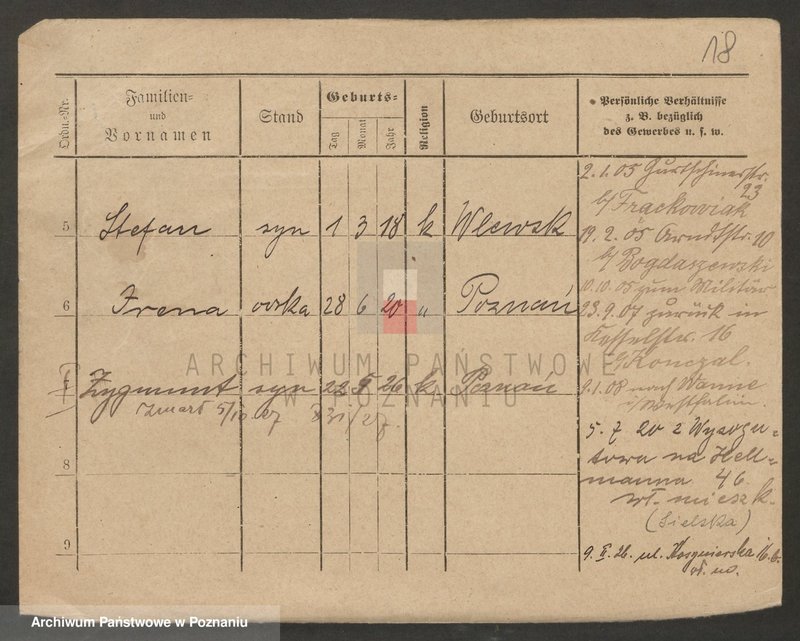 18
Ordn.-Nr.
Familien-
und
Vornamen
Stand
Geburts-
Tag
Monat
Jahr
Religion
Geburtsort
Persönliche Verhältnisse
z. B. bezüglich
des Gewerbes u. s. w.
5 Stefan syn 1 3 18 k
6 Irena 28 6 20 " Poznań
7 Zygmunt syn 22 26 k Poznań
zmarł 5/10 27
8
9
2.1.05 Gurtschinerstr.
23
b/ Frąckowiak
19.2.05 Arndtstr. 10
b/ Bogdaszewski
10.10.05 zum Militär
23.9.07 zurück in
16
b/ Konczal
9.1.08 nach Wanne
i/Westfalen.
5.7 20 z
na Hell-
manna 46
wł. mieszk.
(Sielska)
9. II. 26. ul.
ARCHIWUM PAŃSTWOWE
W POZNANIU
Archiwum Państwowe w Poznaniu